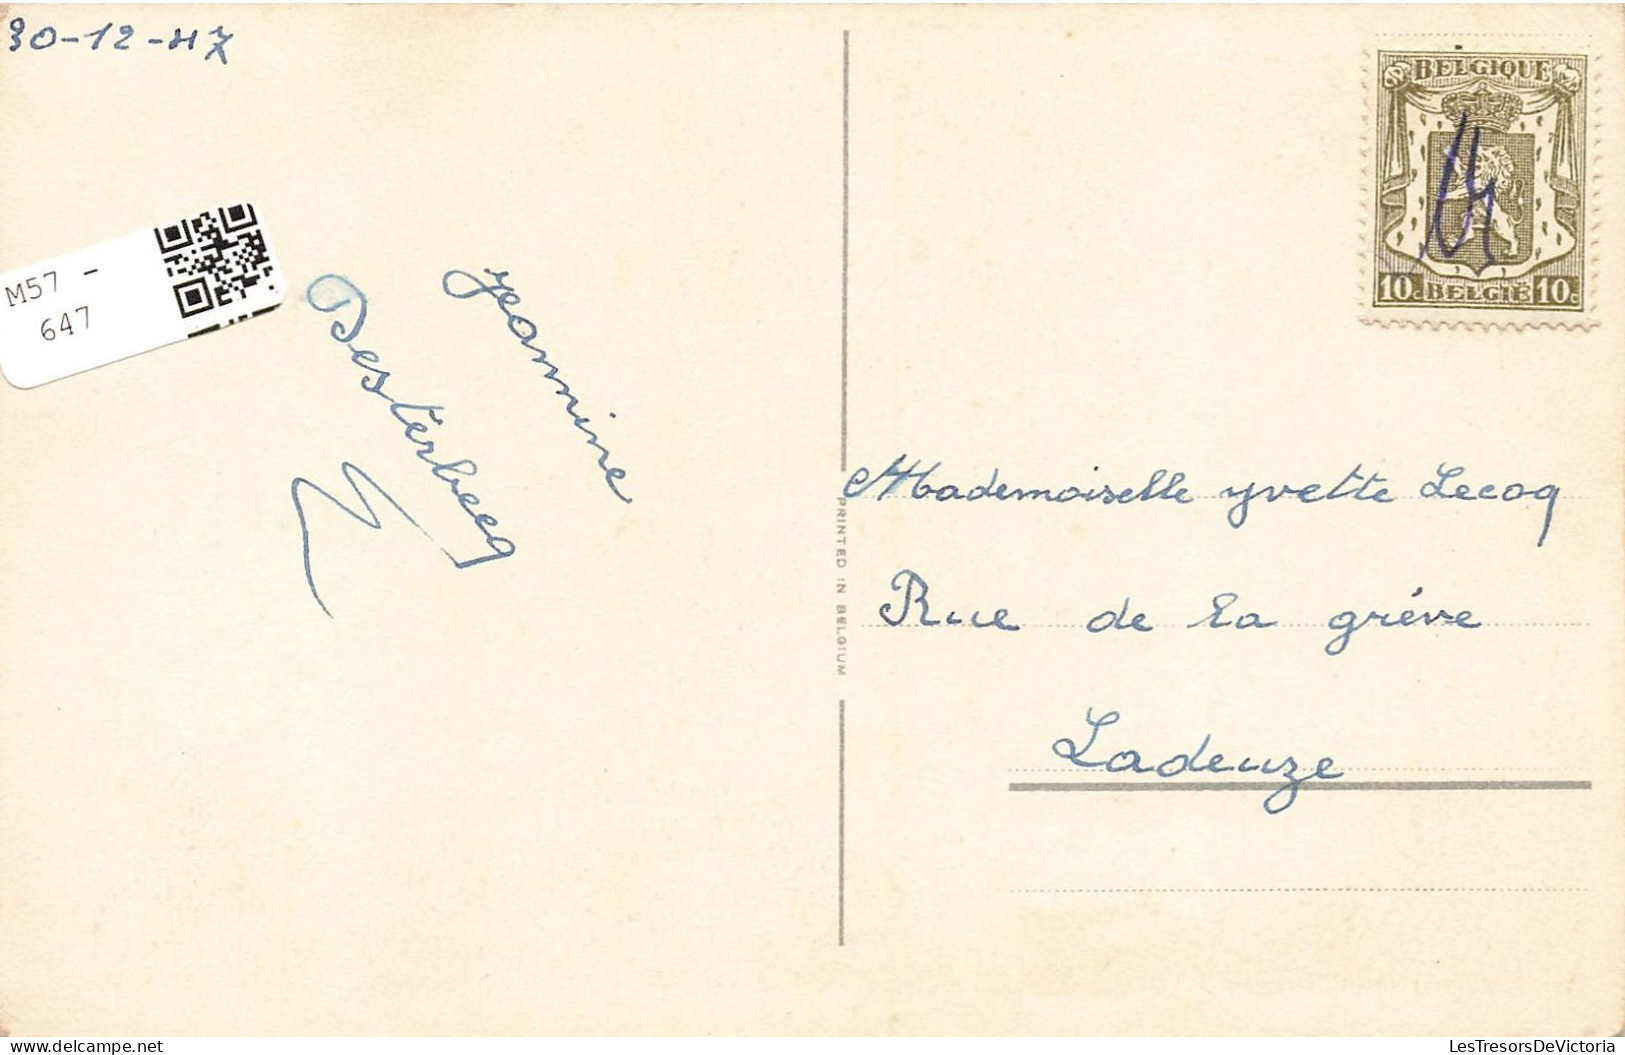 30-12-47
M57 -
647
yeannine
Desterbecq
BELGIQUE
10c BELGIË 10c
PRINTED IN BELGIUM
Mademoiselle yvette Lecoq
Rue de la gréve
Ladeuze
LesTresorsDeVictoria.com
LesTresorsDeVictoria